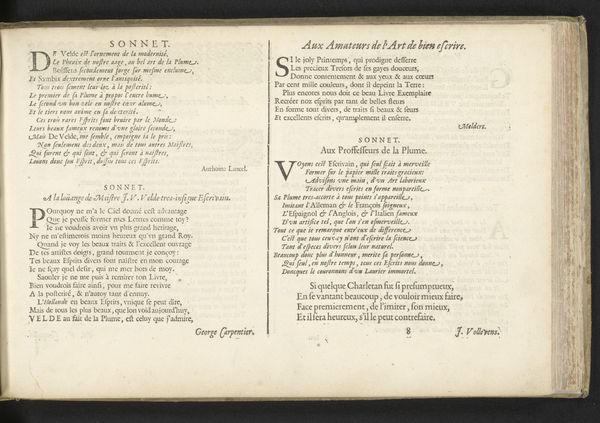 SONNET.
DE Velde est l'ornement de la modernité,
Le Phœnix de nostre aage, au bel art de la Plume.
Boissens secondement forge sur mesme enclume,
Et Symbix dextrement orne l'antiquité.
Tous trois sement leur los à la posterité:
Le premier de sa Plume à propos l'encre hume,
Le second un bon cele en nostre cœur alume,
Et le tiers nous anime en sa dexterité.
Ces trois rares Esprits font bruire par le Monde
Leurs beaux fameux renoms d'une gloire seconde,
Mais De Velde, me semble, empoigne ja le pris:
Non seulement des deux, mais de tous autres Maistres,
Qui furent & qui sont, & qui seront à naistres,
Louons donc son Esprit, dessus tous ces Esprits.
Anthoine Lancel.
SONNET.
A la loüange de Maistre J. V. Velde tres-insigne Escrivain.
POurquoy ne m'a le Ciel donné cest advantage
Que je peusse former mes Lettres comme toy?
Je ne voudrois avoir un plus grand heritage,
Ny ne m'estimerois moins heureux qu'un grand Roy.
Quand je voy les beaux traits & l'excellent ouvrage
De tes artistes doigts, grand tourment je conçoy:
Tes beaux Esprits divers font naistre en mon courage
Je ne sçay quel desir, qui me met hors de moy.
Saouler je ne me puis à remirer ton Livre,
Bien voudrois faire ainsi, pour me faire revivre
A la posterité, & n'auroy tant d'ennuy.
L'Hollande en beaux Esprits, unique se peut dire,
Mais de tous les plus beaux, que lon void aujourd'huy,
VELDE au fait de la Plume, est celuy que j'admire,
George Carpentier.
Aux Amateurs de l'Art de bien escrire.
SI le joly Printemps, qui prodigue desserre
Les precieux Tresors de ses gayes douceurs,
Donne contentement & aux yeux & aux cœurs
Par cent mille couleurs, dont il depeint la Terre:
Plus encores nous doit ce beau Livre Exemplaire
Recréer nos esprits par tant de belles fleurs
En forme tout divers, de traits si beaux & seurs
Et excellents escrits, qu'amplement il enserre.
Molders.
SONNET.
Aux Proffesseurs de la Plume.
VOyons cest Escrivain, qui seul sçait à merveille
Former sur le papier mille traits gracieux:
Advisons une main, d'un Art laborieux
Tracer divers escrits en forme nonpareille.
Sa Plume tres-accorte à tous points s'appareille,
Imitant l'Alleman & le François soigneux,
L'Espaignol & l'Anglois, & l'Italien fameux
D'un artifice tel, que l'on s'en esmerveille.
Tout ce que je remarque entr'eux de difference
C'est que tous ceux-cy n'ont d'escrire la science
Tant d'especes divers selon leur naturel.
Beaucoup donc plus d'honneur, merite sa personne,
Qui seul, en nostre temps, tous ces Escrits nous donne,
Doncques le couronnons d'un Laurier immortel.
Si quelque Charletan fut si presumptueux,
En se vantant beaucoup, de vouloir mieux faire,
Face premierement, de l'imiter, son mieux,
Et il sera heureux, s'il le peut contrefaire.
8
J. Vollevens.